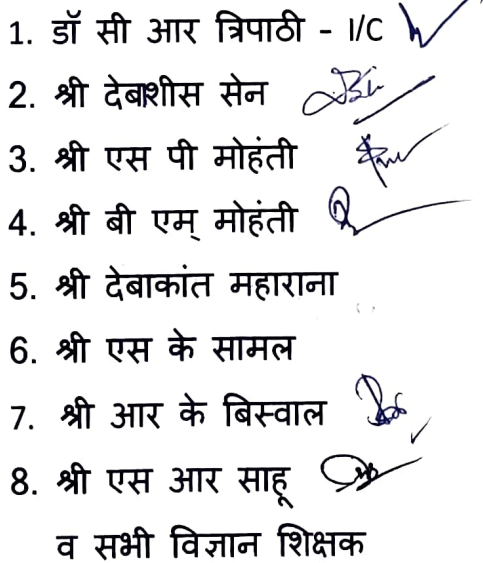 1. डॉ सी आर त्रिपाठी - I/C
2. श्री देबाशीस सेन
3. श्री एस पी मोहंती
4. श्री बी एम् मोहंती
5. श्री देबाकांत महाराना
6. श्री एस के सामल
7. श्री आर के बिस्वाल
8. श्री एस आर साहू
व सभी विज्ञान शिक्षक